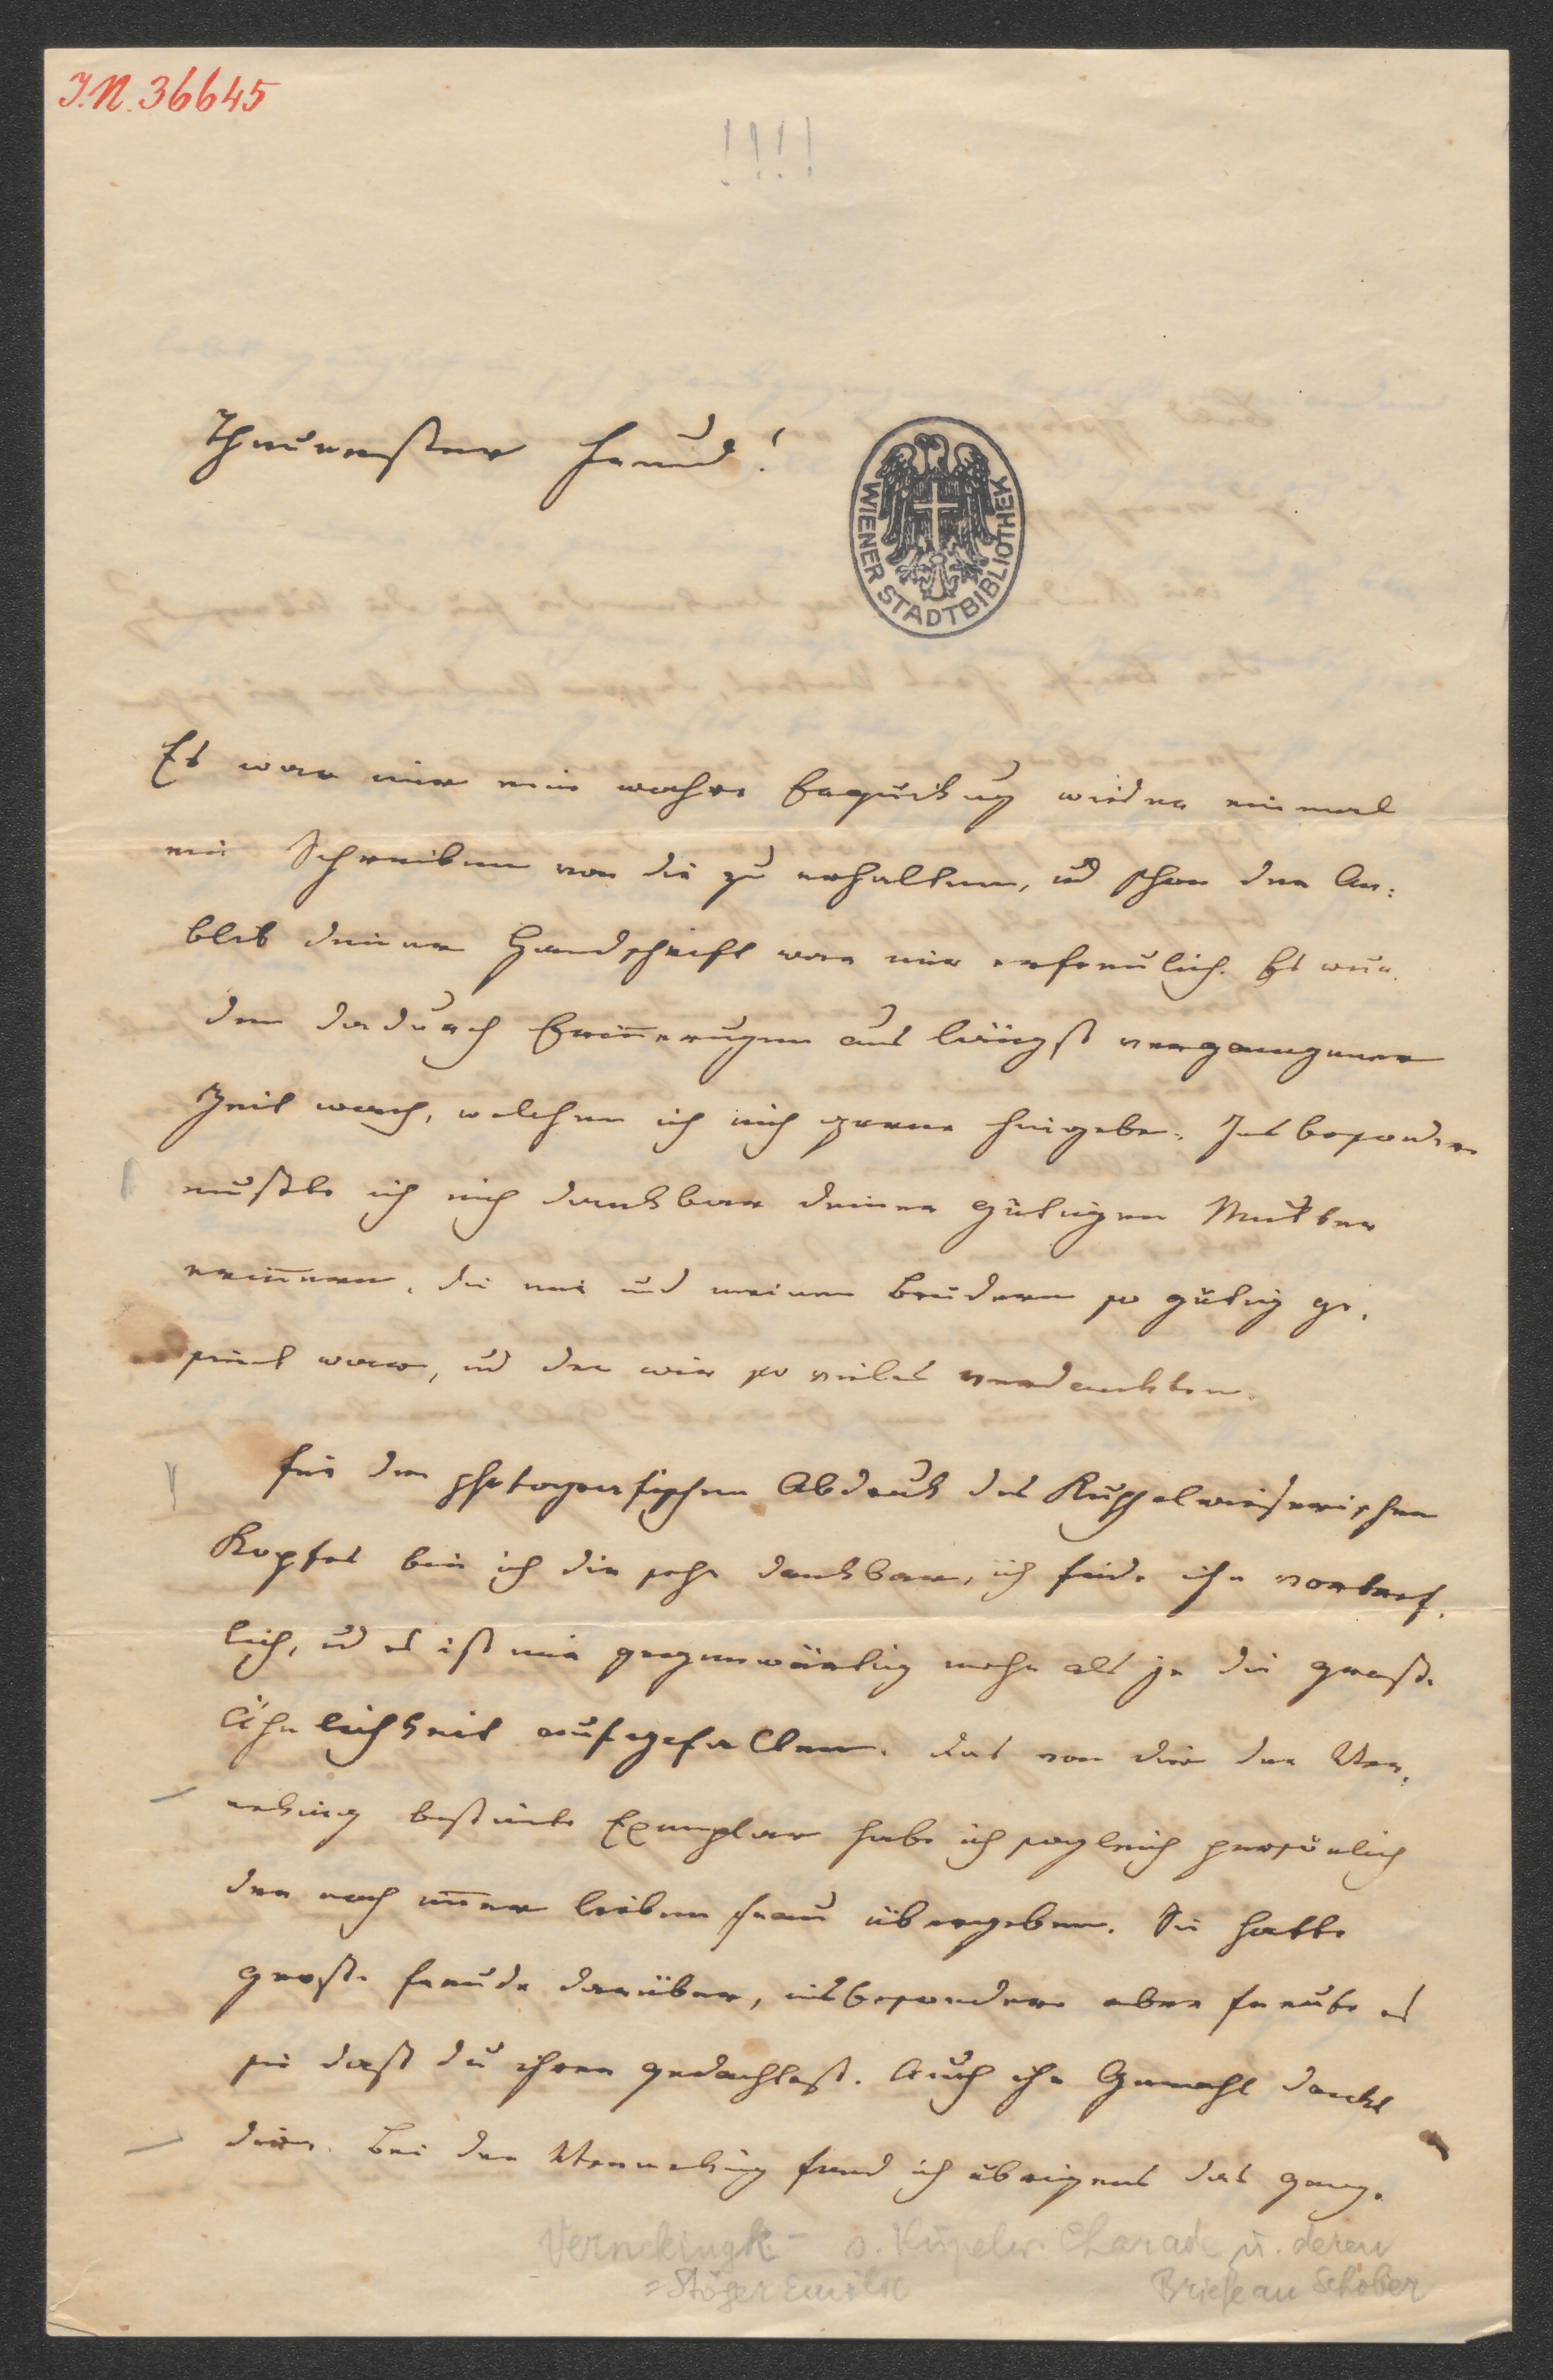 J.N. 36645
!!!!
Theuerster Freund!
WIENER STADTBIBLIOTHEK
Es war mir eine wahre Erquickung wieder einmal
ein Schreiben von dir zu erhalten, ud schon der An-
blik deiner Handschrift war mir erfreulich. Es wur-
den dadurch Erin̄erungen aus längst vergangener
Zeit wach, welchen ich mich gerne hingebe. Insbesondere
mußte ich mich dankbar deiner gütigen Mutter
erin̄ern, die mir und meinen Brüdern so gütig ge-
sint war, ud der wir so vieles verdankten.
Für den photografischen Abdruck des Kuppelwieserischen
Kopfes bin ich dir sehr dankbar, ich finde ihn vortref-
lich, ud es ist mir gegenwärtig mehr als je die große
Ähnlichkeit aufgefallen. Das von dir der Ver-
neking bestimte Exemplar habe ich sogleich persönlich
der noch im̄er lieben Frau übergeben. Sie hatte
große Freude darüber, insbesondere aber freute es
sie daß du ihrer gedachtest. Auch ihr Gemahl dankt
dir. Bei der Verneking fand ich übrigens das ganze
Vernekingk - s. Kupelw. Charade u. deren
= Stöger Emilie Briefe an Schober